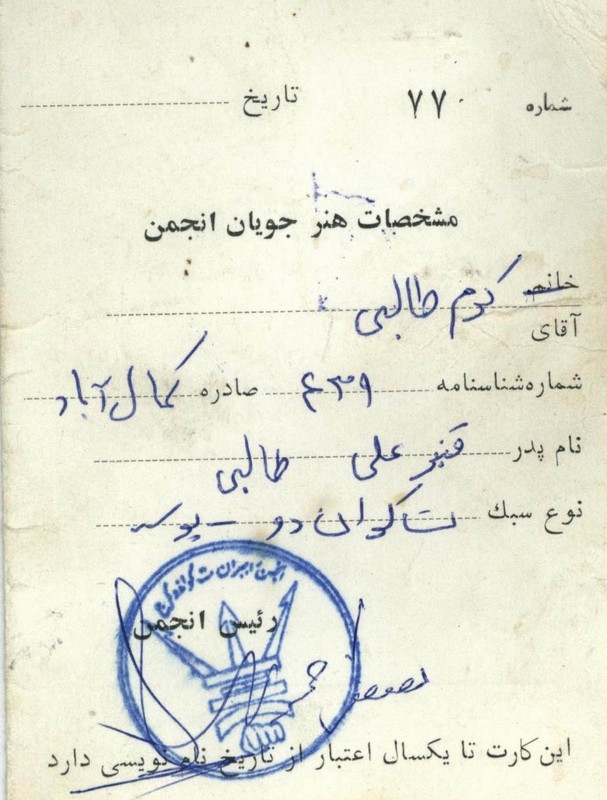 شماره ۷۷۰ تاریخ
مشخصات هنر جویان انجمن
خانم
آقای کرم طالبی
شماره شناسنامه ۶۳۹ صادره کمال آباد
نام پدر قنبر علی طالبی
نوع سبك
انجمن ایران
رئیس انجمن
این کارت تا یکسال اعتبار از تاریخ نام نویسی دارد